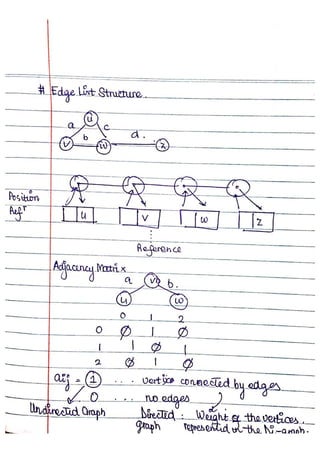 # Edge List Structure.
u
a c
b d.
v w z
Position
Ref^r
u v w z
Reference
Adjacency Matrix
a v b.
u w
0 1 2
0 Ø 1 Ø
1 1 Ø 1
2 Ø 1 Ø
aij = 1 ... vertice connected by edges
0 ... no edges
Undirected Graph Directed : Weight of the vertices.
graph represented in the Di-graph.